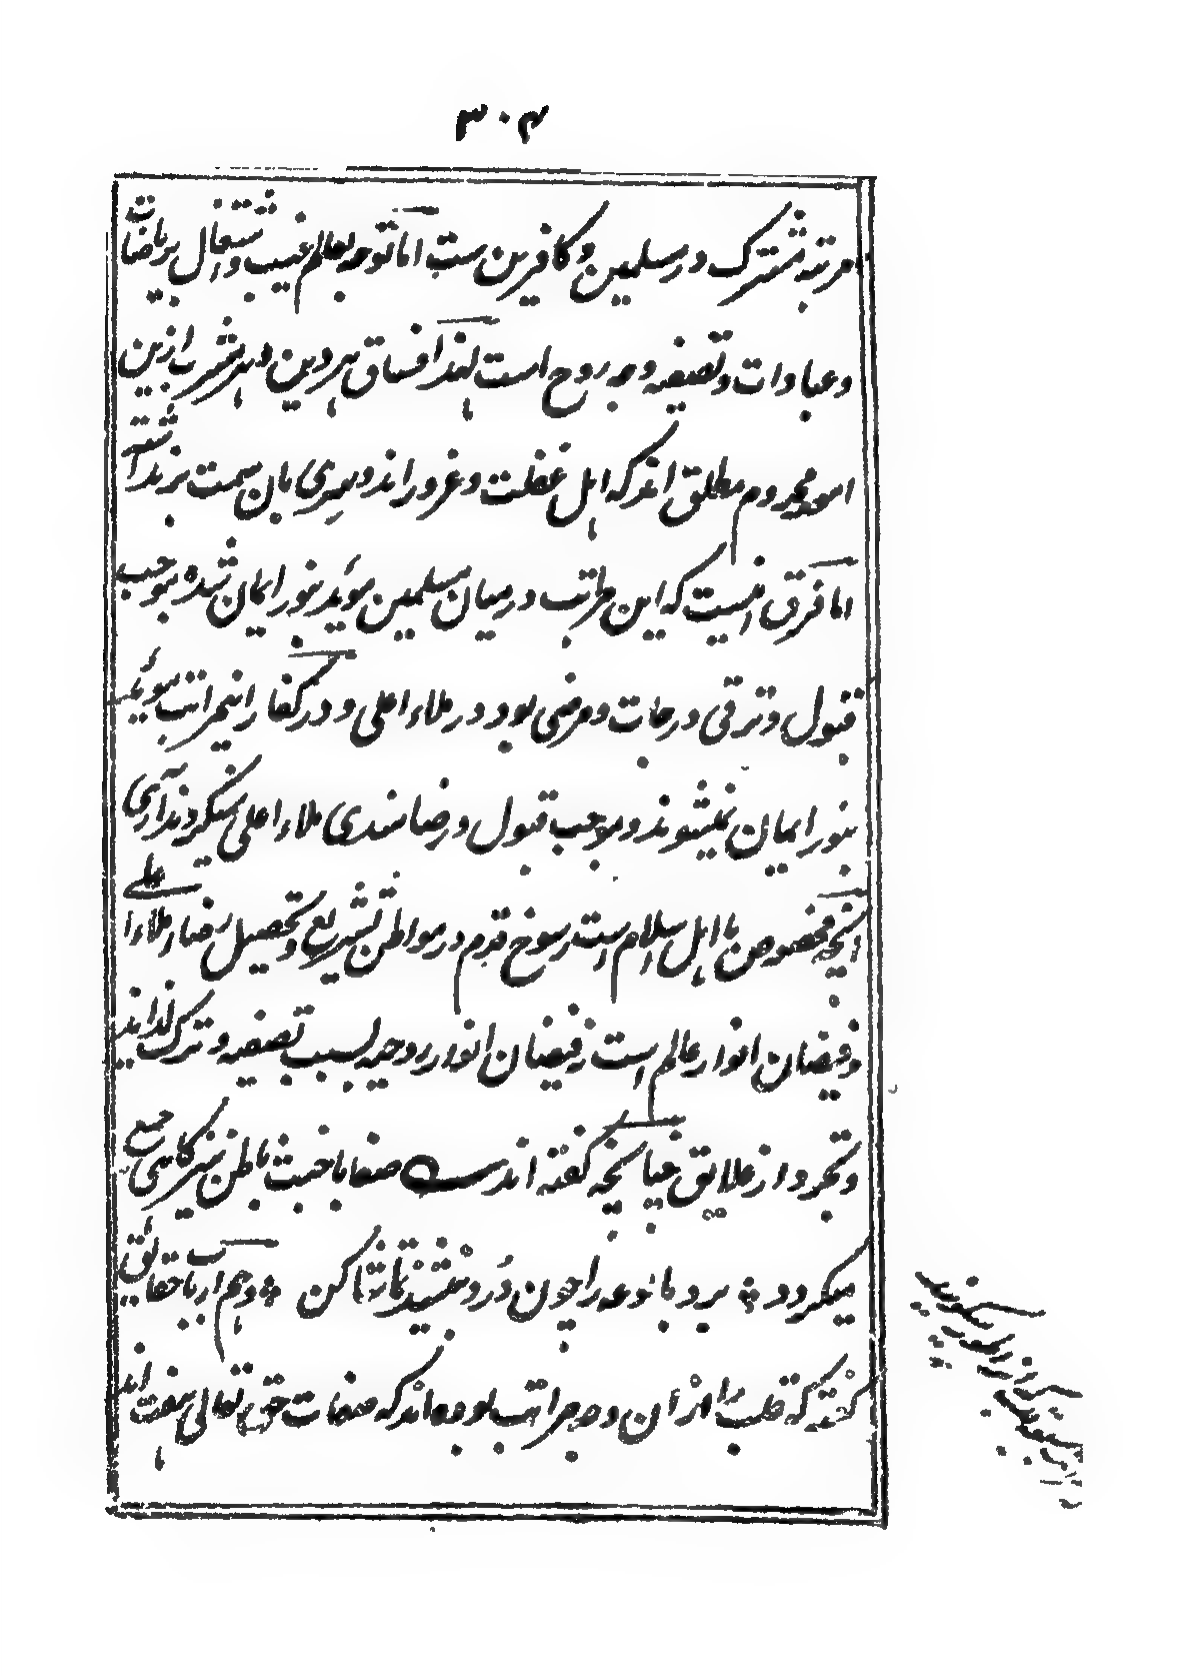 ۳۰۴
مرتبه مشترک در مسلمین و کافرین ست اما توجه بعالم غیب و اشتغال بریاضات
و عبادات و تصفیه وجه روح است لهذا فساق هر دین و هر مشرب ازین
امور محروم مطلق اند که اهل غفلت و غرور اند و بهری بان سمت برنداشته
اما فرق اینست که این مراتب در میان مسلمین موید بنور ایمان شده موجب
قبول و ترقی درجات و مرضی بود در ملاء اعلی و در کفار اینمراتب موید
بنور ایمان نمیشوند و موجب قبول و رضامندی ملاء اعلی نمیگردند آری
آنچه مخصوص با اهل اسلام است رسوخ قدم در مواطن تشریع و تحصیل رضاء ملاء اعلی
و فیضان انوار عالم است و فیضان انوار روحیه بسبب تصفیه و ترک لذایذ
و تجرد از علایق چنانچه گفته اند صفا با خبث باطن نیز گاهی جمع
میگردد برد بالوعه را چون درد بنشیند تماشا کن و هم ارباب حقایق
گفته که قلب را ازان وجه مراتب بوده اند که صفات حق تعالی هفت اند